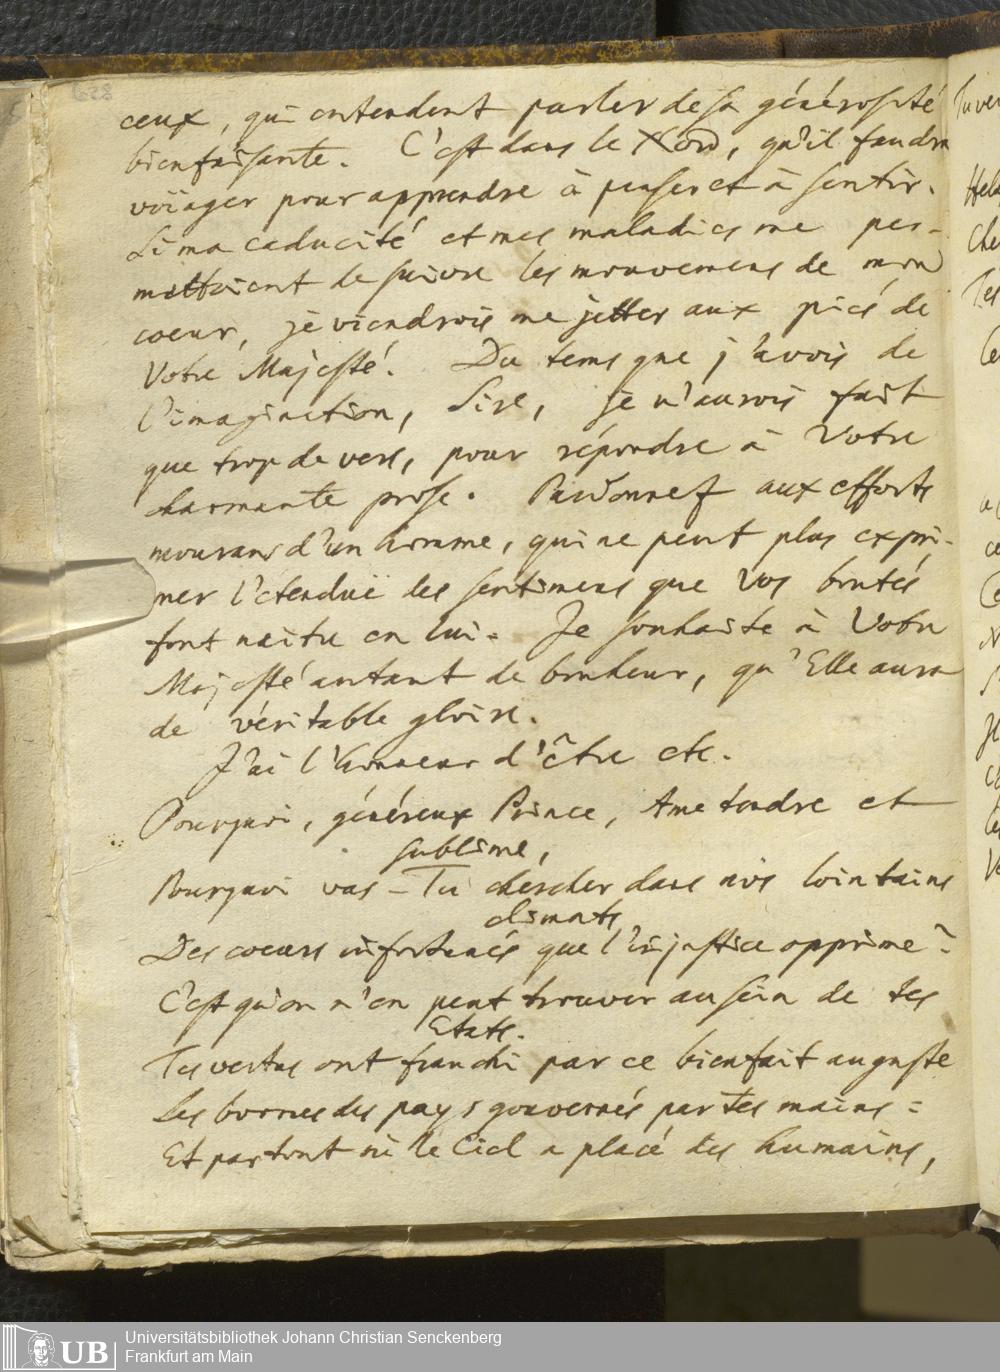 628
ceux, qui entendent parler de sa générosité
bienfaisante. C'est dans le Nord, qu'il faudra
voïager pour apprendre à penser et à sentir.
Si ma caducité et mes maladies me per-
mettoient de suivre les mouvemens de mon
coeur, je viendrois me jetter aux piés de
Votre Majesté. Du tems que j'avois de
l'imagination, Sire, je n'aurois fait
que trop de vers, pour répondre à Votre
charmante prose. Pardonnez aux efforts
mourans d'un homme, qui ne peut plus expri-
mer l'etenduë des sentimens que Vos bontés
font naitre en lui. Je souhaite à Votre
Majesté autant de bonheur, qu'Elle aura
de véritable gloire.
J'ai l'honneur d'être etc.
Pourquoi, généreux Prince, Ame tendre et
sublime,
Pourquoi vas-Tu chercher dans nos lointains
climats
Des coeurs infortunés que l'injustice opprime?
C'est qu'on n'en peut trouver au sein de tes
Etats.
Tes vertus ont franchi par ce bienfait auguste
Les bornes des pays gouvernés par tes mains:
Et partout où le Ciel a placé des humains,
UB
Universitätsbibliothek Johann Christian Senckenberg
Frankfurt am Main